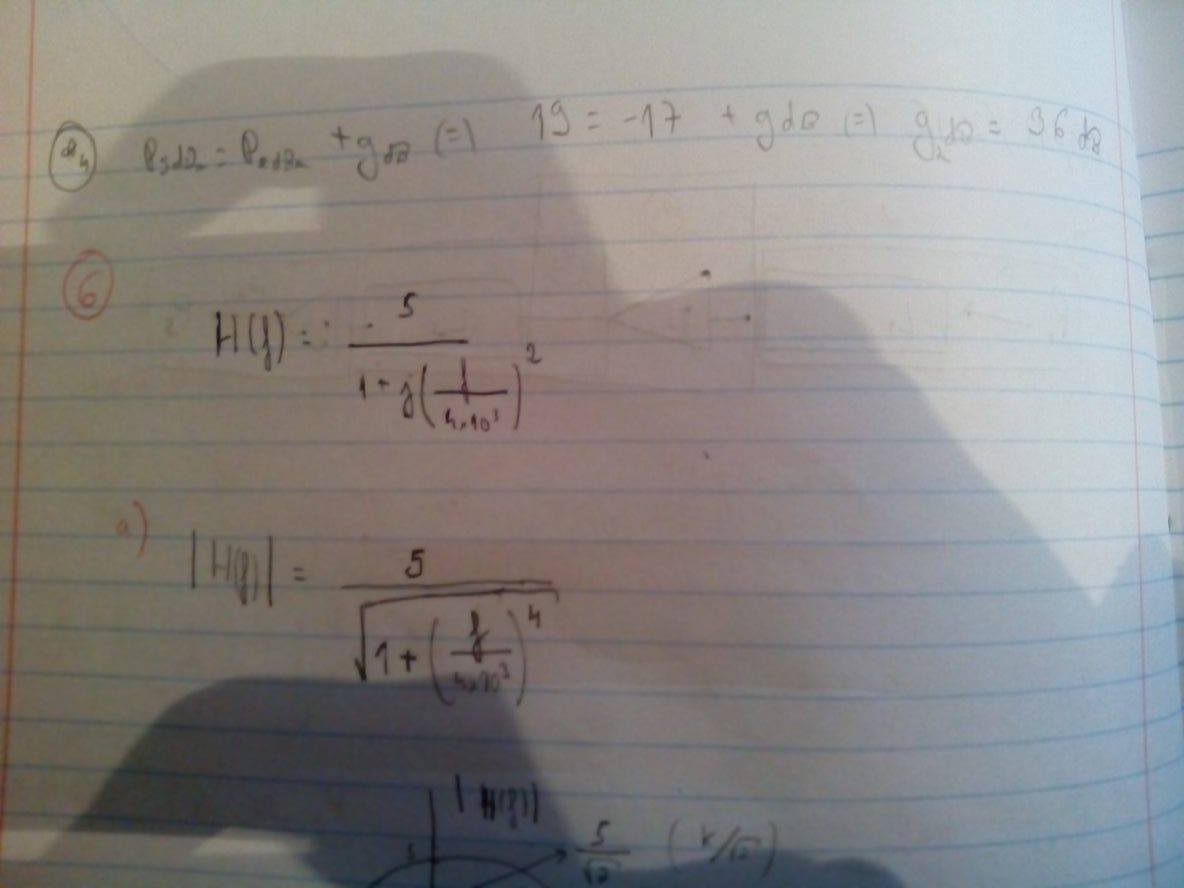 P_SdBm = P_edBm + g_dB (=) 19 = -17 + g dB (=) g_2 dB = 36 dB
6
H(f) = 5 / (1 + j(f / 4×10³)²)
a) |H(f)| = 5 / √(1 + (f / 4×10³)⁴)
|H(f)|
5 5/√2 (K/√2)